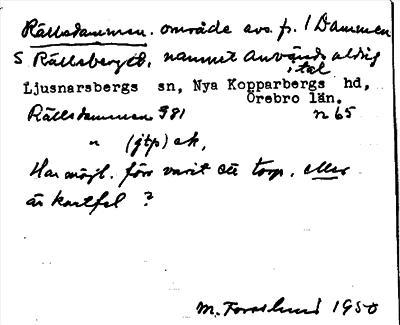 Rällsdammen. område avs. p. 1 Dammen
S Rällsbergsb, namnet används aldrig
i tal
Ljusnarsbergs sn, Nya Kopparbergs hd,
Örebro län.
Rällsdammen 981 n 65
" (jtp) ek,
Har möjl. förr varit ett torp. eller
är kartfel ?
M. Forslund 1950